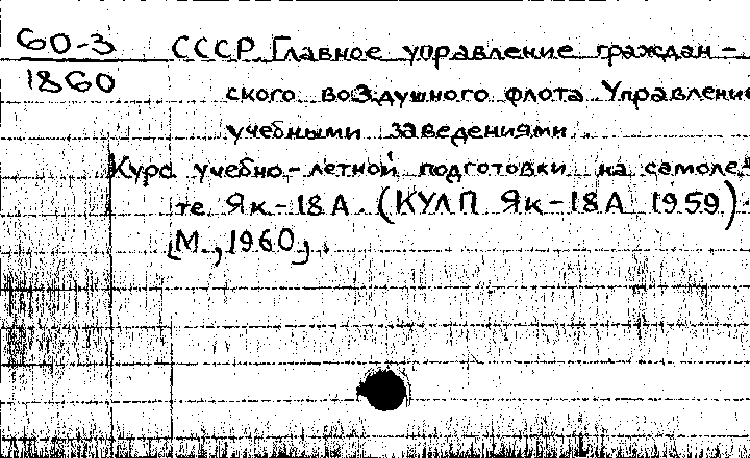 60-3 СССР. Главное управление граждан-
1860 ского воздушного флота Управление
учебными заведениями.
Курс учебно-летной подготовки на самоле-
те Як-18А. (КУЛП Як-18А 1959).
[М., 1960].